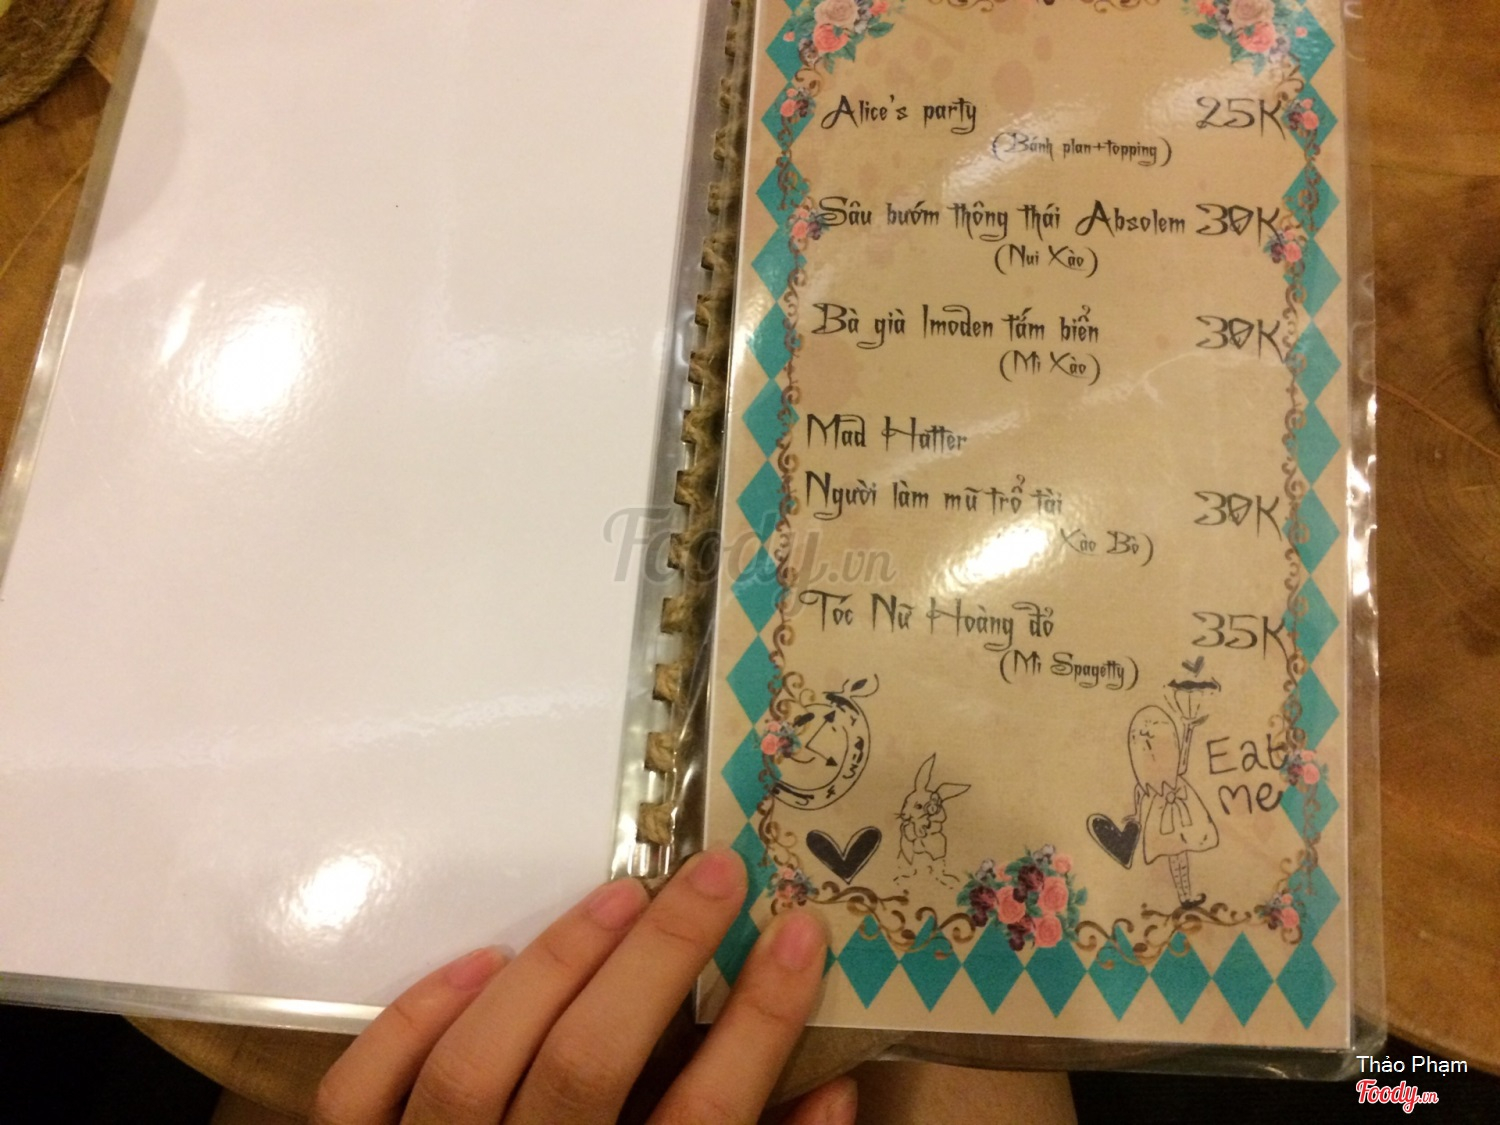 Alice's party 25K
(Bánh plan+topping)
Sâu bướm thông thái Absolem 30K
(Nui Xào)
Bà già Imoden tấm biển 30K
(Mì Xào)
Mad Hatter
Người làm mũ trổ tài 30K
Xào Bò)
Tóc Nữ Hoàng đỏ 35K
(Mì Spagetty)
Eat
me
Foody.vn
Thảo Phạm
Foody.vn